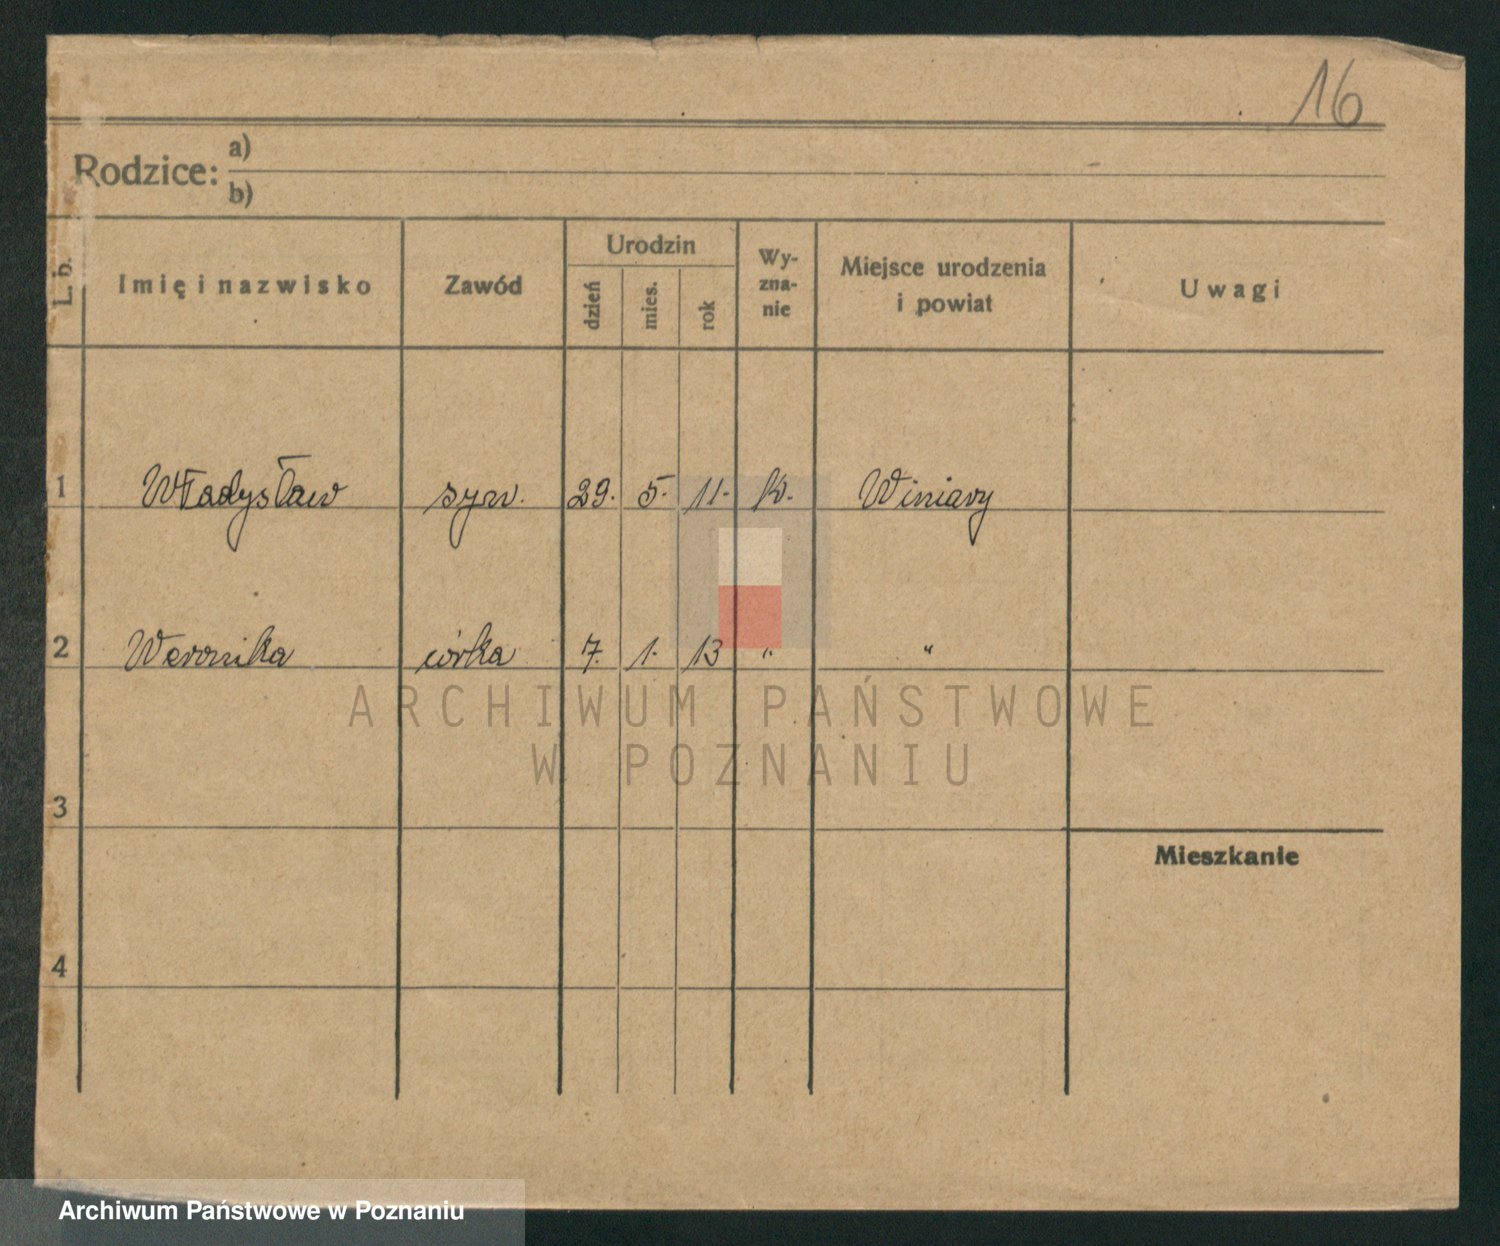 16
Rodzice: a)
b)
L. b. Imię i nazwisko Zawód Urodzin dzień mies. rok Wy-zna-nie Miejsce urodzenia i powiat Uwagi
1 Władysław syn. 29. 5. 11. k. Winiary
2 Weronika córka 7. 1. 13 " "
ARCHIWUM PAŃSTWOWE
W POZNANIU
3
Mieszkanie
4
Archiwum Państwowe w Poznaniu